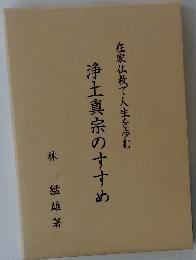 在家仏教で人生を歩む
浄土真宗のすすめ
林 猛雄著